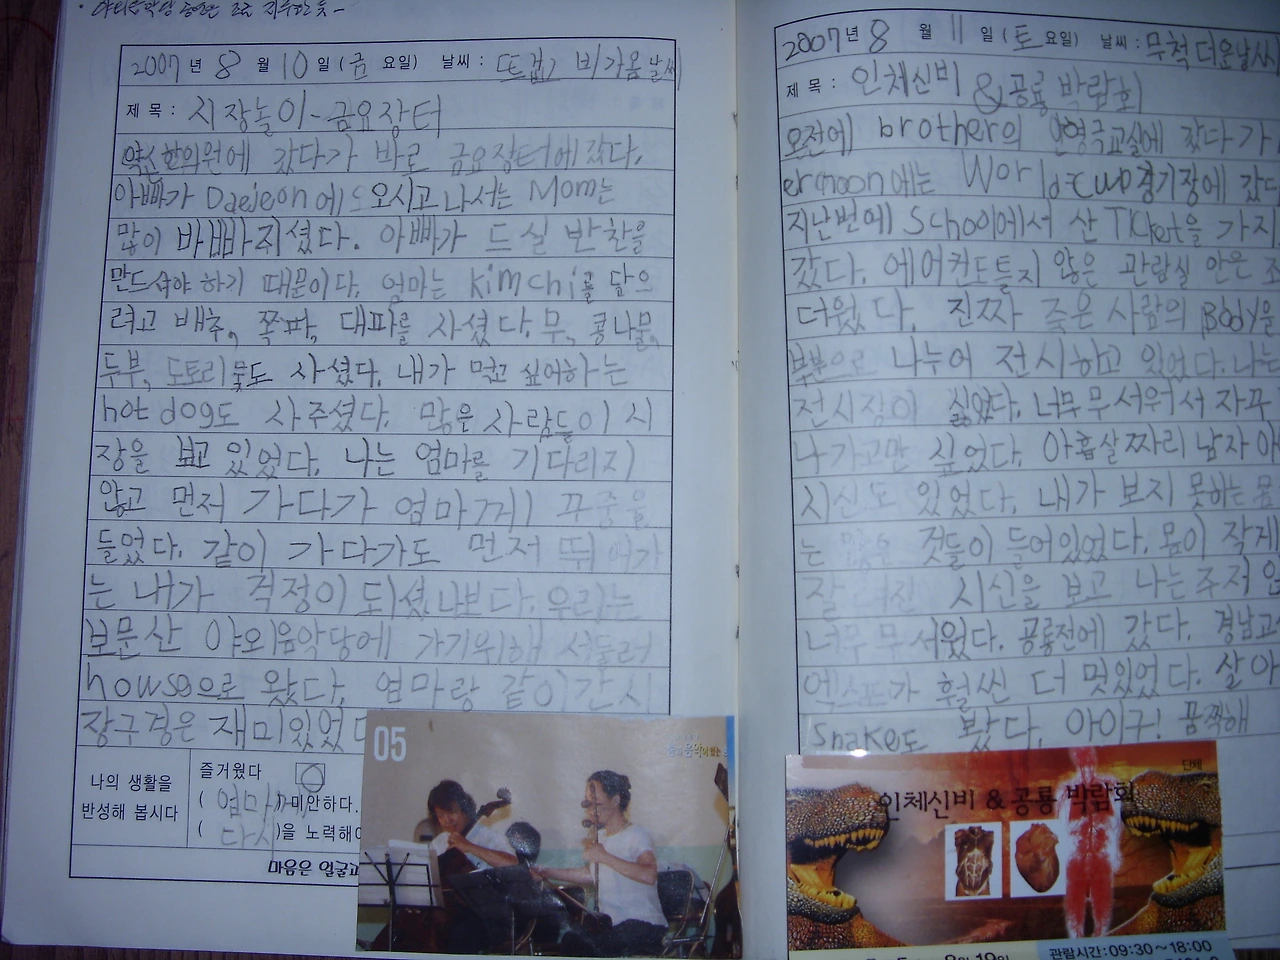 2007년 8월 10일 (금요일) 날씨: 뜨겁고 비가옴
제목: 시장놀이-금요장터
한의원에 갔다가 바로 금요장터에 갔다.
아빠가 Daejeon에 오시고 나서는 Mom는
많이 바빠지셨다. 아빠가 드실 반찬을
만드셔야 하기 때문이다. 엄마는 kimchi를 담으
려고 배추, 쪽파, 대파를 사셨다. 무, 콩나물,
두부, 도토리묵도 사셨다. 내가 먹고 싶어하는
hot dog도 사주셨다. 많은 사람들이 시
장을 보고 있었다. 나는 엄마를 기다리지
않고 먼저 가다가 엄마께 꾸중을
들었다. 같이 가다가도 먼저 뛰어가
는 내가 걱정이 되셨나보다. 우리는
보문산 야외음악당에 가기위해 서둘러
house으로 왔다. 엄마랑 같이 간 시
장구경은 재미있었다
나의 생활을
반성해 봅시다
즐거웠다
(엄마께)미안하다.
(다시)을 노력해야
마음은 얼굴과
05
2007년 8월 11일 (토요일) 날씨: 무척 더운날씨
제목: 인체신비 & 공룡 박람회
오전에 brother의 연극교실에 갔다가
ernoon에는 World-cup경기장에 갔다
지난번에 School에서 산 Ticket을 가지
갔다. 에어컨도 틀지 않은 관람실 안은
더웠다. 진짜 죽은 사람의 Body을
부분으로 나누어 전시하고 있었다. 나는
전시장이 싫었다. 너무 무서워서 자꾸
나가고만 싶었다. 아홉살짜리 남자 아
시신도 있었다. 내가 보지 못하는 몸
는 많은 것들이 들어있었다. 몸이 작게
잘려진 시신을 보고 나는 주저 앉
너무 무서웠다. 공룡전에 갔다. 경남고
엑스포가 훨씬 더 멋있었다. 살아
snake도 봤다. 아이구! 끔찍해
단체
인체신비 & 공룡 박람회
관람시간:09:30~18:00